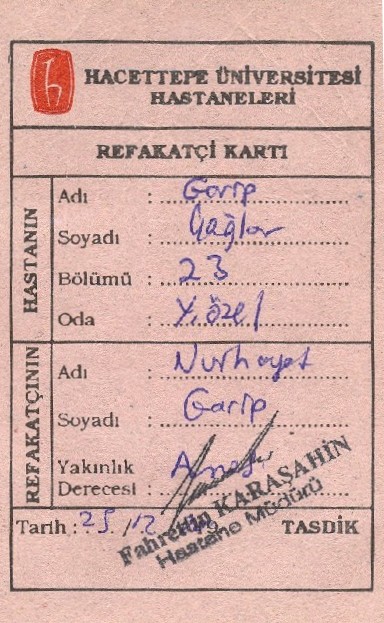 HACETTEPE ÜNİVERSİTESİ
HASTANELERİ
REFAKATÇİ KARTI
HASTANIN
Adı : Garip
Soyadı : Çağlar
Bölümü : 23
Oda : Y.özel
REFAKATÇININ
Adı : Nurhayat
Soyadı : Garip
Yakınlık
Derecesi : Annesi
Tarih : 25 /12 /19 TASDİK
Fahrettin KARAŞAHİN
Hastane Müdürü